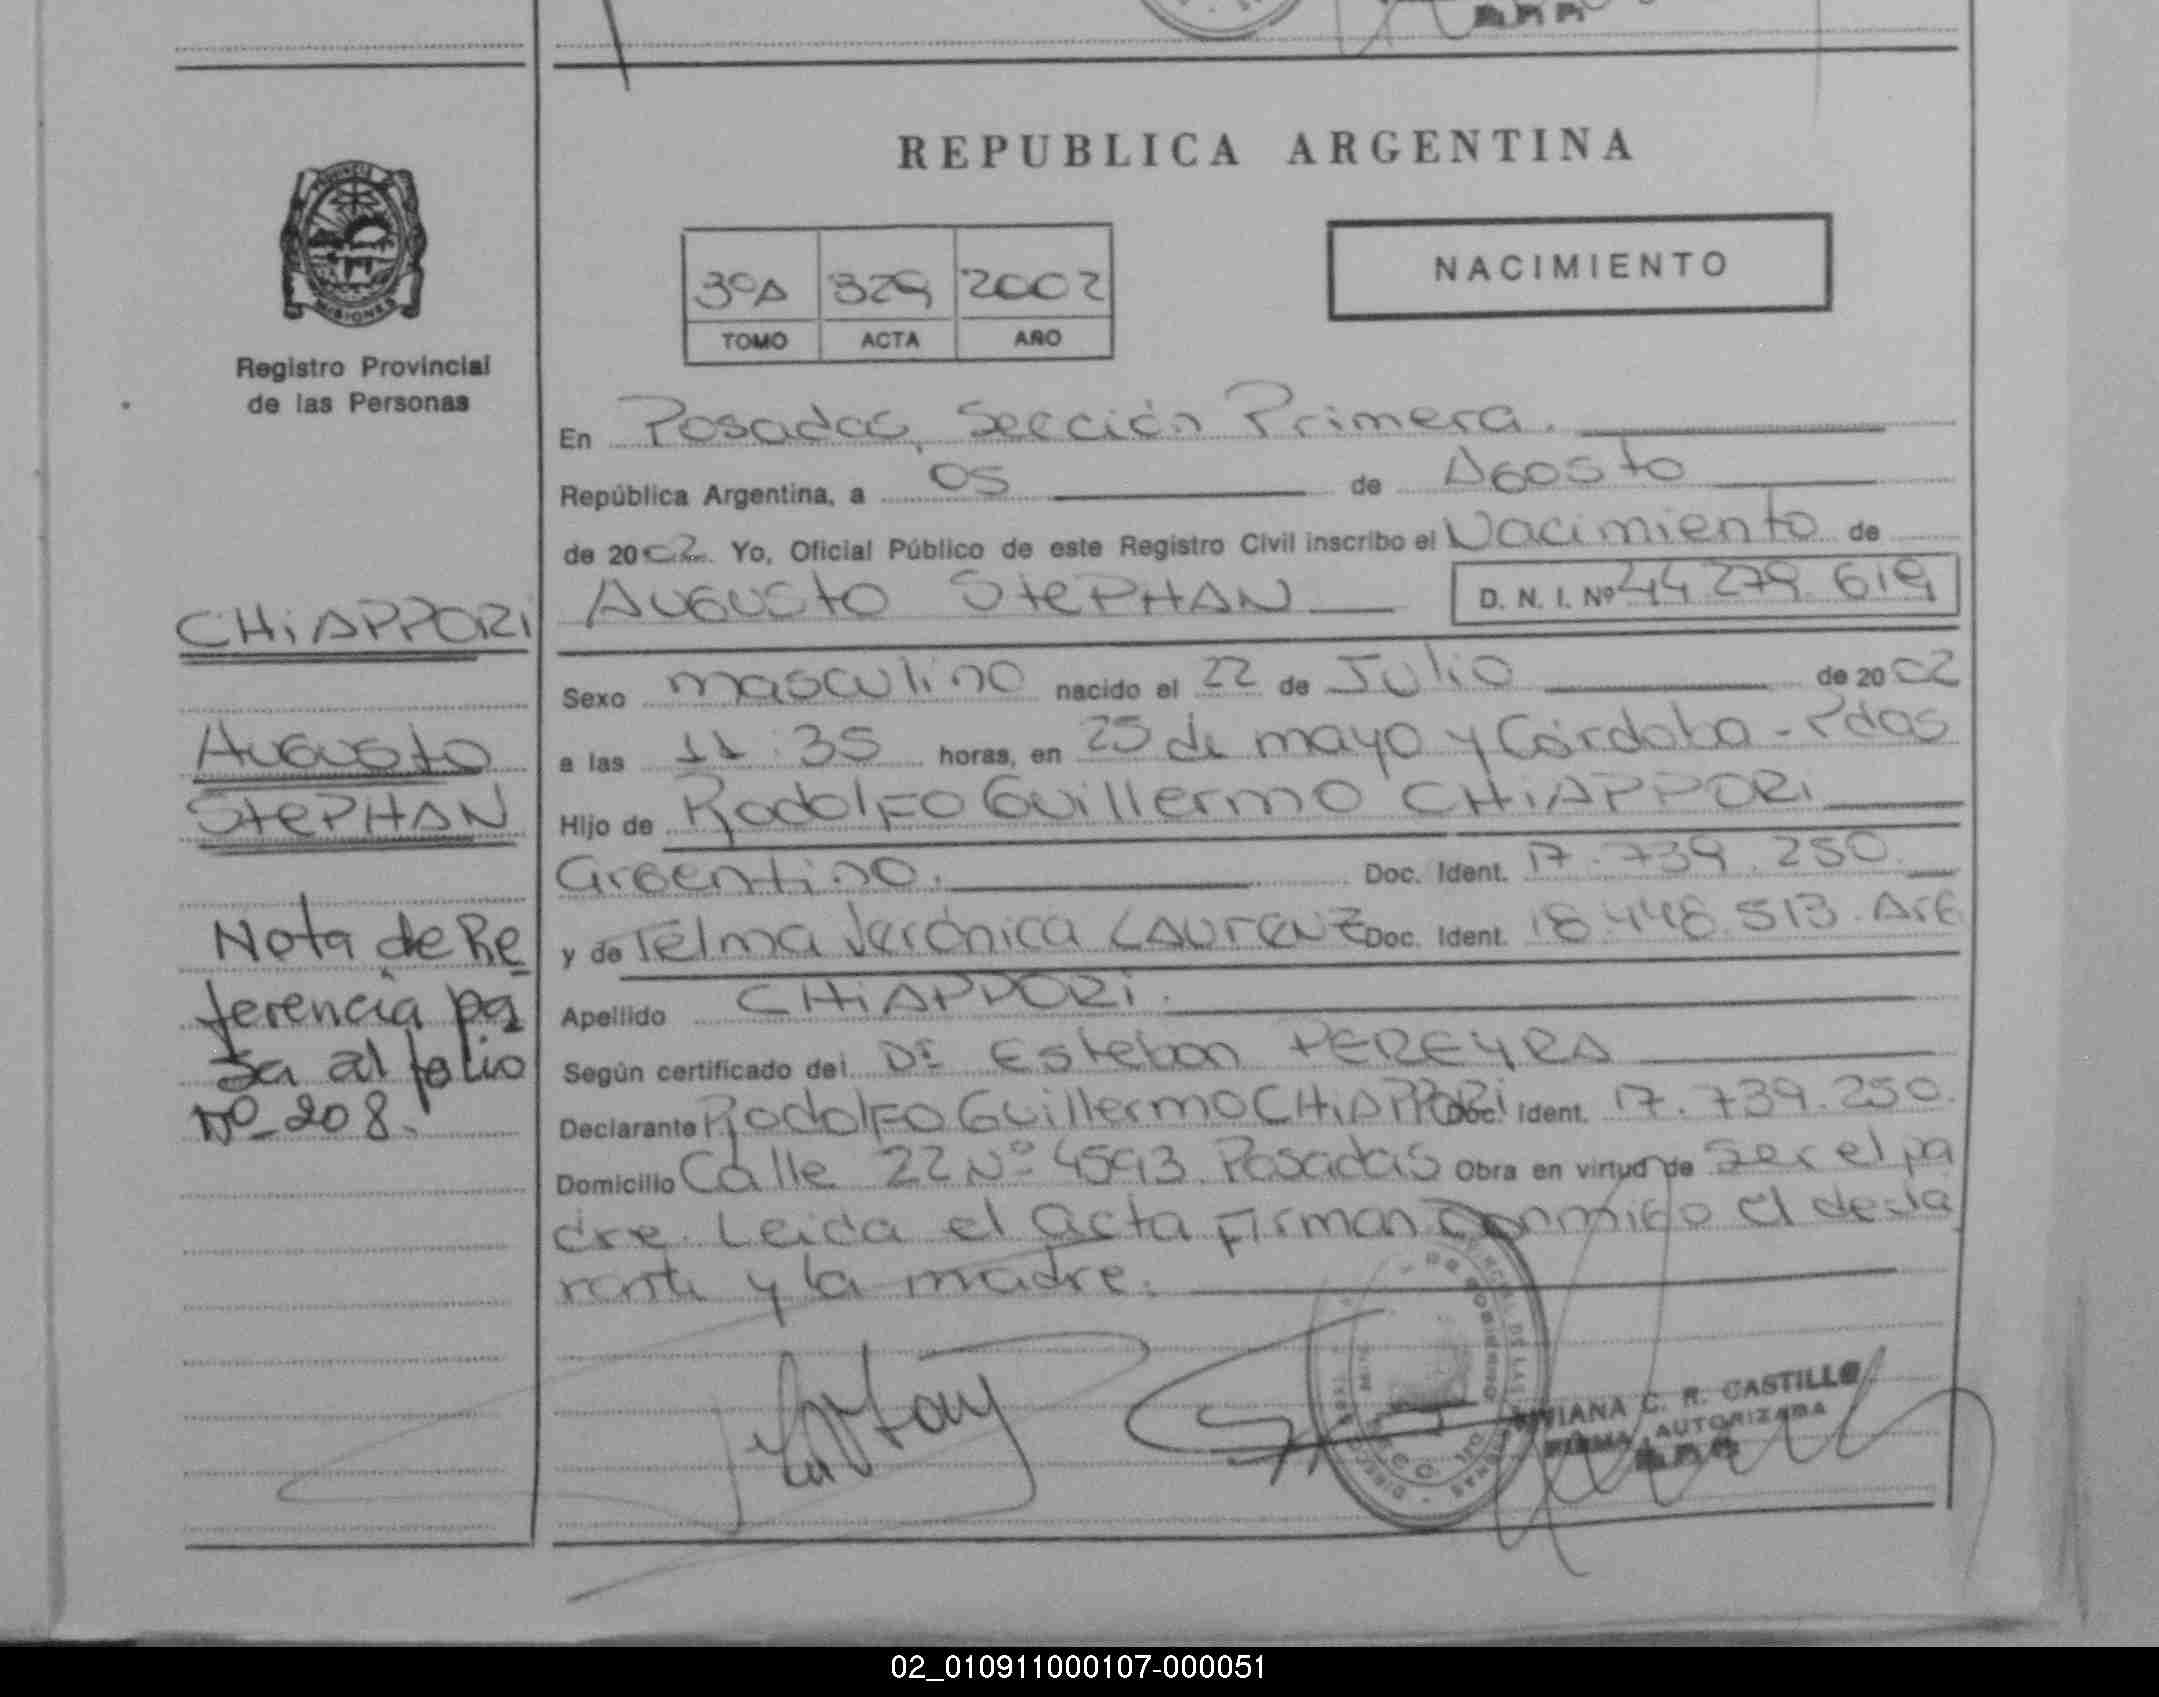 REPUBLICA ARGENTINA
PROVINCIA
MISIONES
Registro Provincial
de las Personas
3ºA 329 2002
TOMO ACTA AÑO
NACIMIENTO
En Posadas, Sección Primera.
República Argentina, a 05 de Agosto
de 2002 Yo, Oficial Público de este Registro Civil inscribo el Nacimiento de
AUGUSTO STEPHAN D. N. I. Nº 44 279 619
Sexo masculino nacido el 22 de Julio de 2002
a las 11:35 horas, en 25 de mayo y Córdoba - Pdas
Hijo de Rodolfo Guillermo CHIAPPORI
Argentino. Doc. Ident. 17.739.250.
y de Telma Verónica LAURENZ Doc. Ident. 18.448.513. Arg
Apellido CHIAPPORI.
Según certificado del Dr Esteban PEREYRA
Declarante Rodolfo Guillermo CHIAPPORI Doc. Ident. 17.739.250.
Domicilio Calle 22 Nº 4593 Posadas Obra en virtud de ser el pa
dre. Leida el acta firman conmigo el decla
rante y la madre.
VIVIANA C. R. CASTILLO
FIRMA AUTORIZADA
CHIAPPORI
Augusto
STEPHAN
Nota de Re
ferencia pa
sa al folio
Nº 208.
02_010911000107-000051